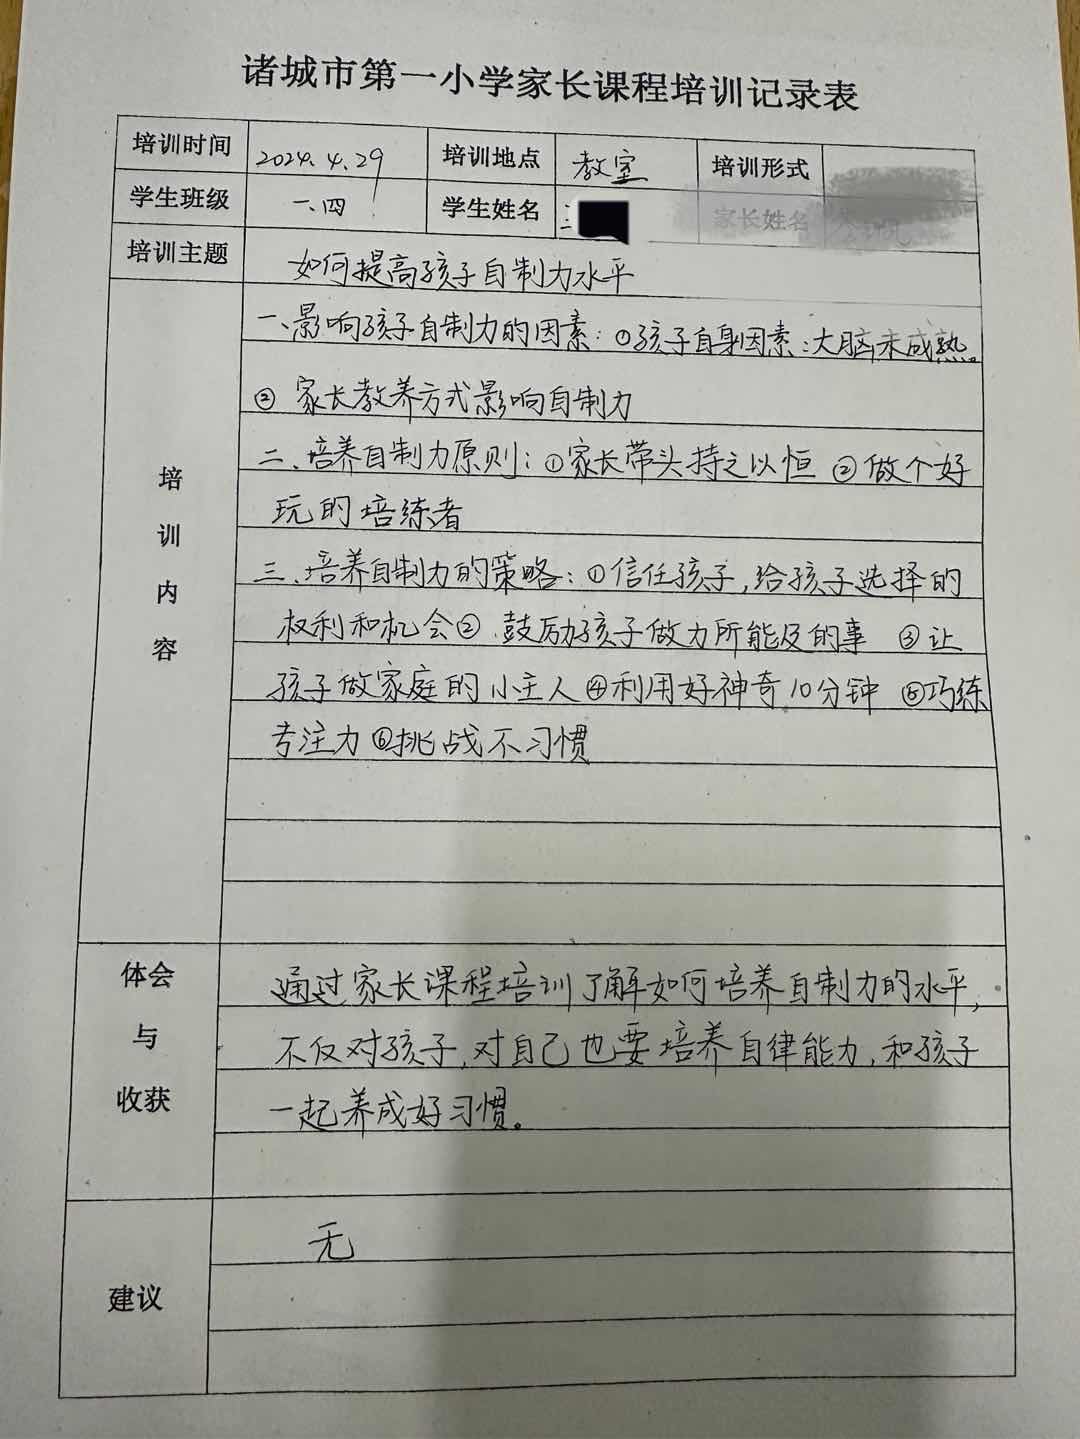 诸城市第一小学家长课程培训记录表
培训时间 2024.4.29 培训地点 教室 培训形式
学生班级 一.四 学生姓名 家长姓名
培训主题 如何提高孩子自制力水平
培训内容
一、影响孩子自制力的因素:①孩子自身因素:大脑未成熟。
② 家长教养方式影响自制力
二、培养自制力原则:①家长带头持之以恒 ②做个好
玩的培练者
三、培养自制力的策略:①信任孩子,给孩子选择的
权利和机会②.鼓励孩子做力所能及的事 ③让
孩子做家庭的小主人④利用好神奇10分钟 ⑤巧练
专注力⑥挑战不习惯
体会与收获
通过家长课程培训了解如何培养自制力的水平,
不仅对孩子,对自己也要培养自律能力,和孩子
一起养成好习惯。
建议
无